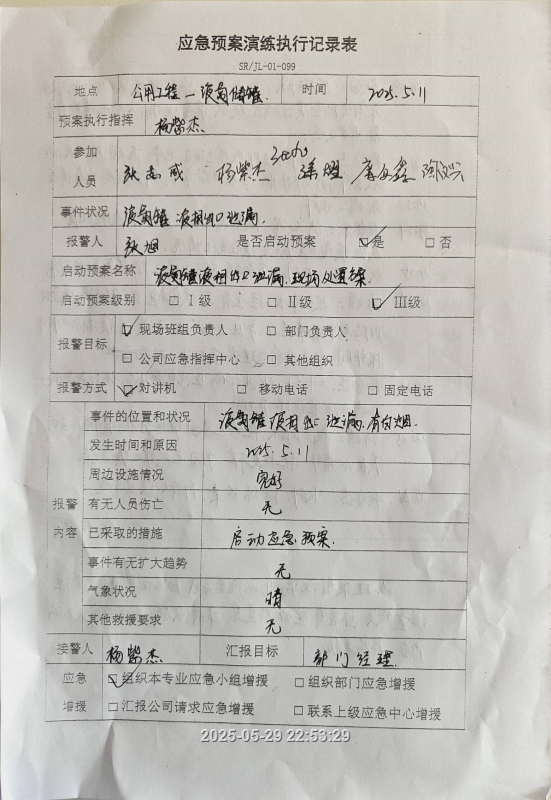 应急预案演练执行记录表
SR/JL-01-099
地点 公用工程一液氮储罐 时间 2025.5.11
预案执行指挥 杨紫杰
参加人员 张志成 杨紫杰
事件状况 液氮罐液相出口泄漏.
报警人 张旭 是否启动预案 ☑是 □否
启动预案名称 液氮罐液相出口泄漏.现场处置方案
启动预案级别 □ Ⅰ级 □ Ⅱ级 ☑ Ⅲ级
报警目标 ☑ 现场班组负责人 □ 部门负责人
□ 公司应急指挥中心 □ 其他组织
报警方式 ☑ 对讲机 □ 移动电话 □ 固定电话
报警内容
事件的位置和状况 液氮罐液相出口泄漏,有白烟.
发生时间和原因 2025.5.11
周边设施情况 完好
有无人员伤亡 无
已采取的措施 启动应急预案.
事件有无扩大趋势 无
气象状况 晴
其他救援要求 无
接警人 杨紫杰 汇报目标 部门经理.
应急增援 ☑组织本专业应急小组增援 □组织部门应急增援
□汇报公司请求应急增援 □联系上级应急中心增援
2025-05-29 22:53:29